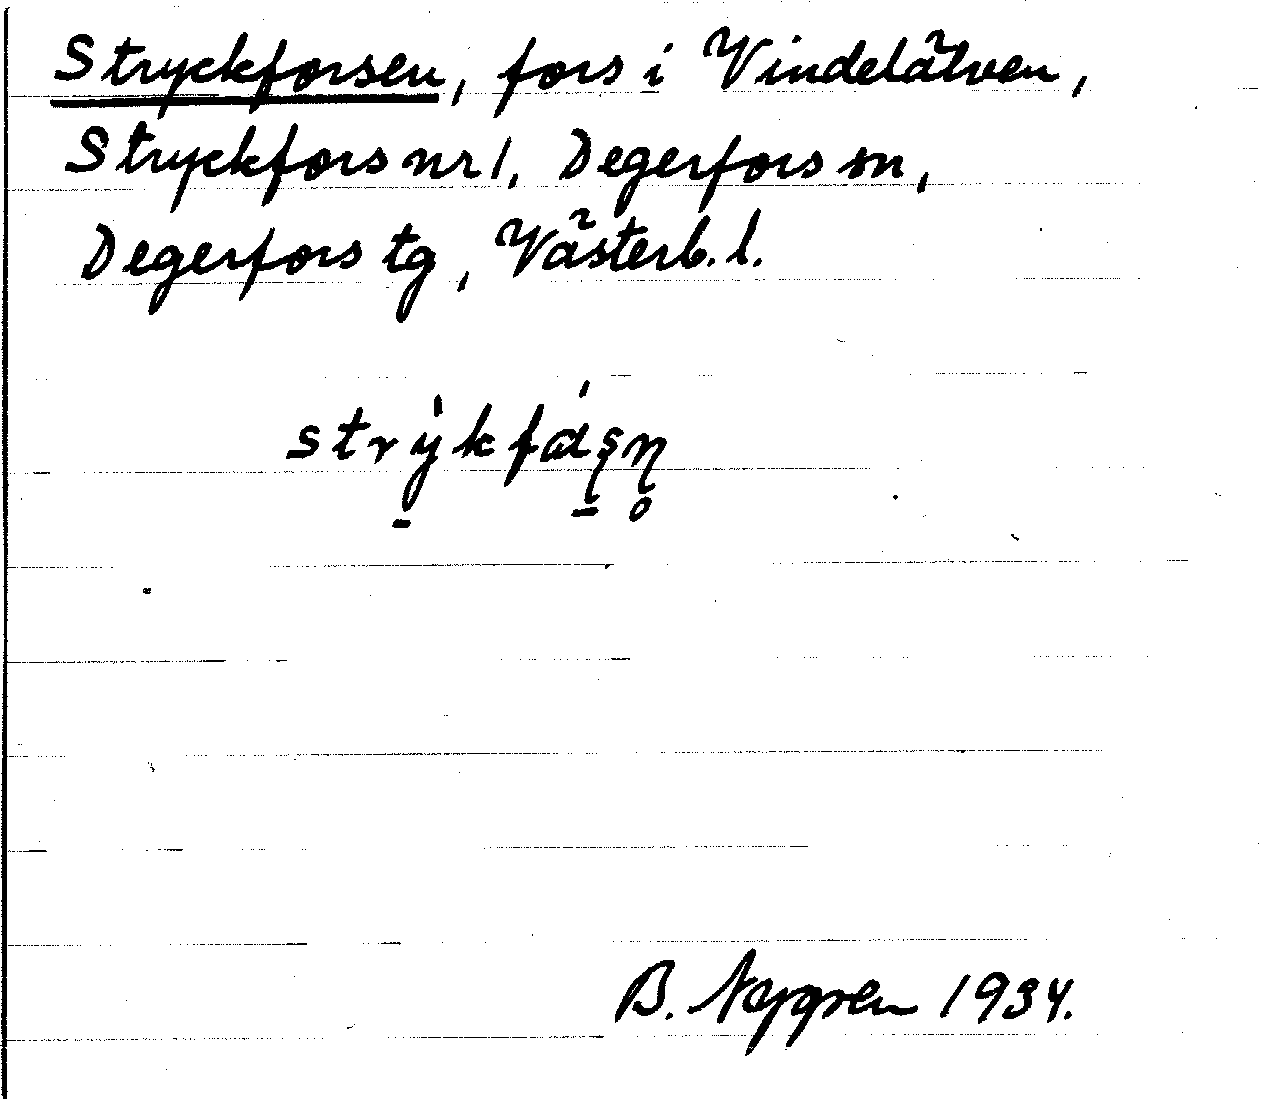 Stryckforsen, fors i Vindelälven,
Stryckfors nr 1, Degerfors sn,
Degerfors tg, Västerb. l.
B. Nygren 1934.